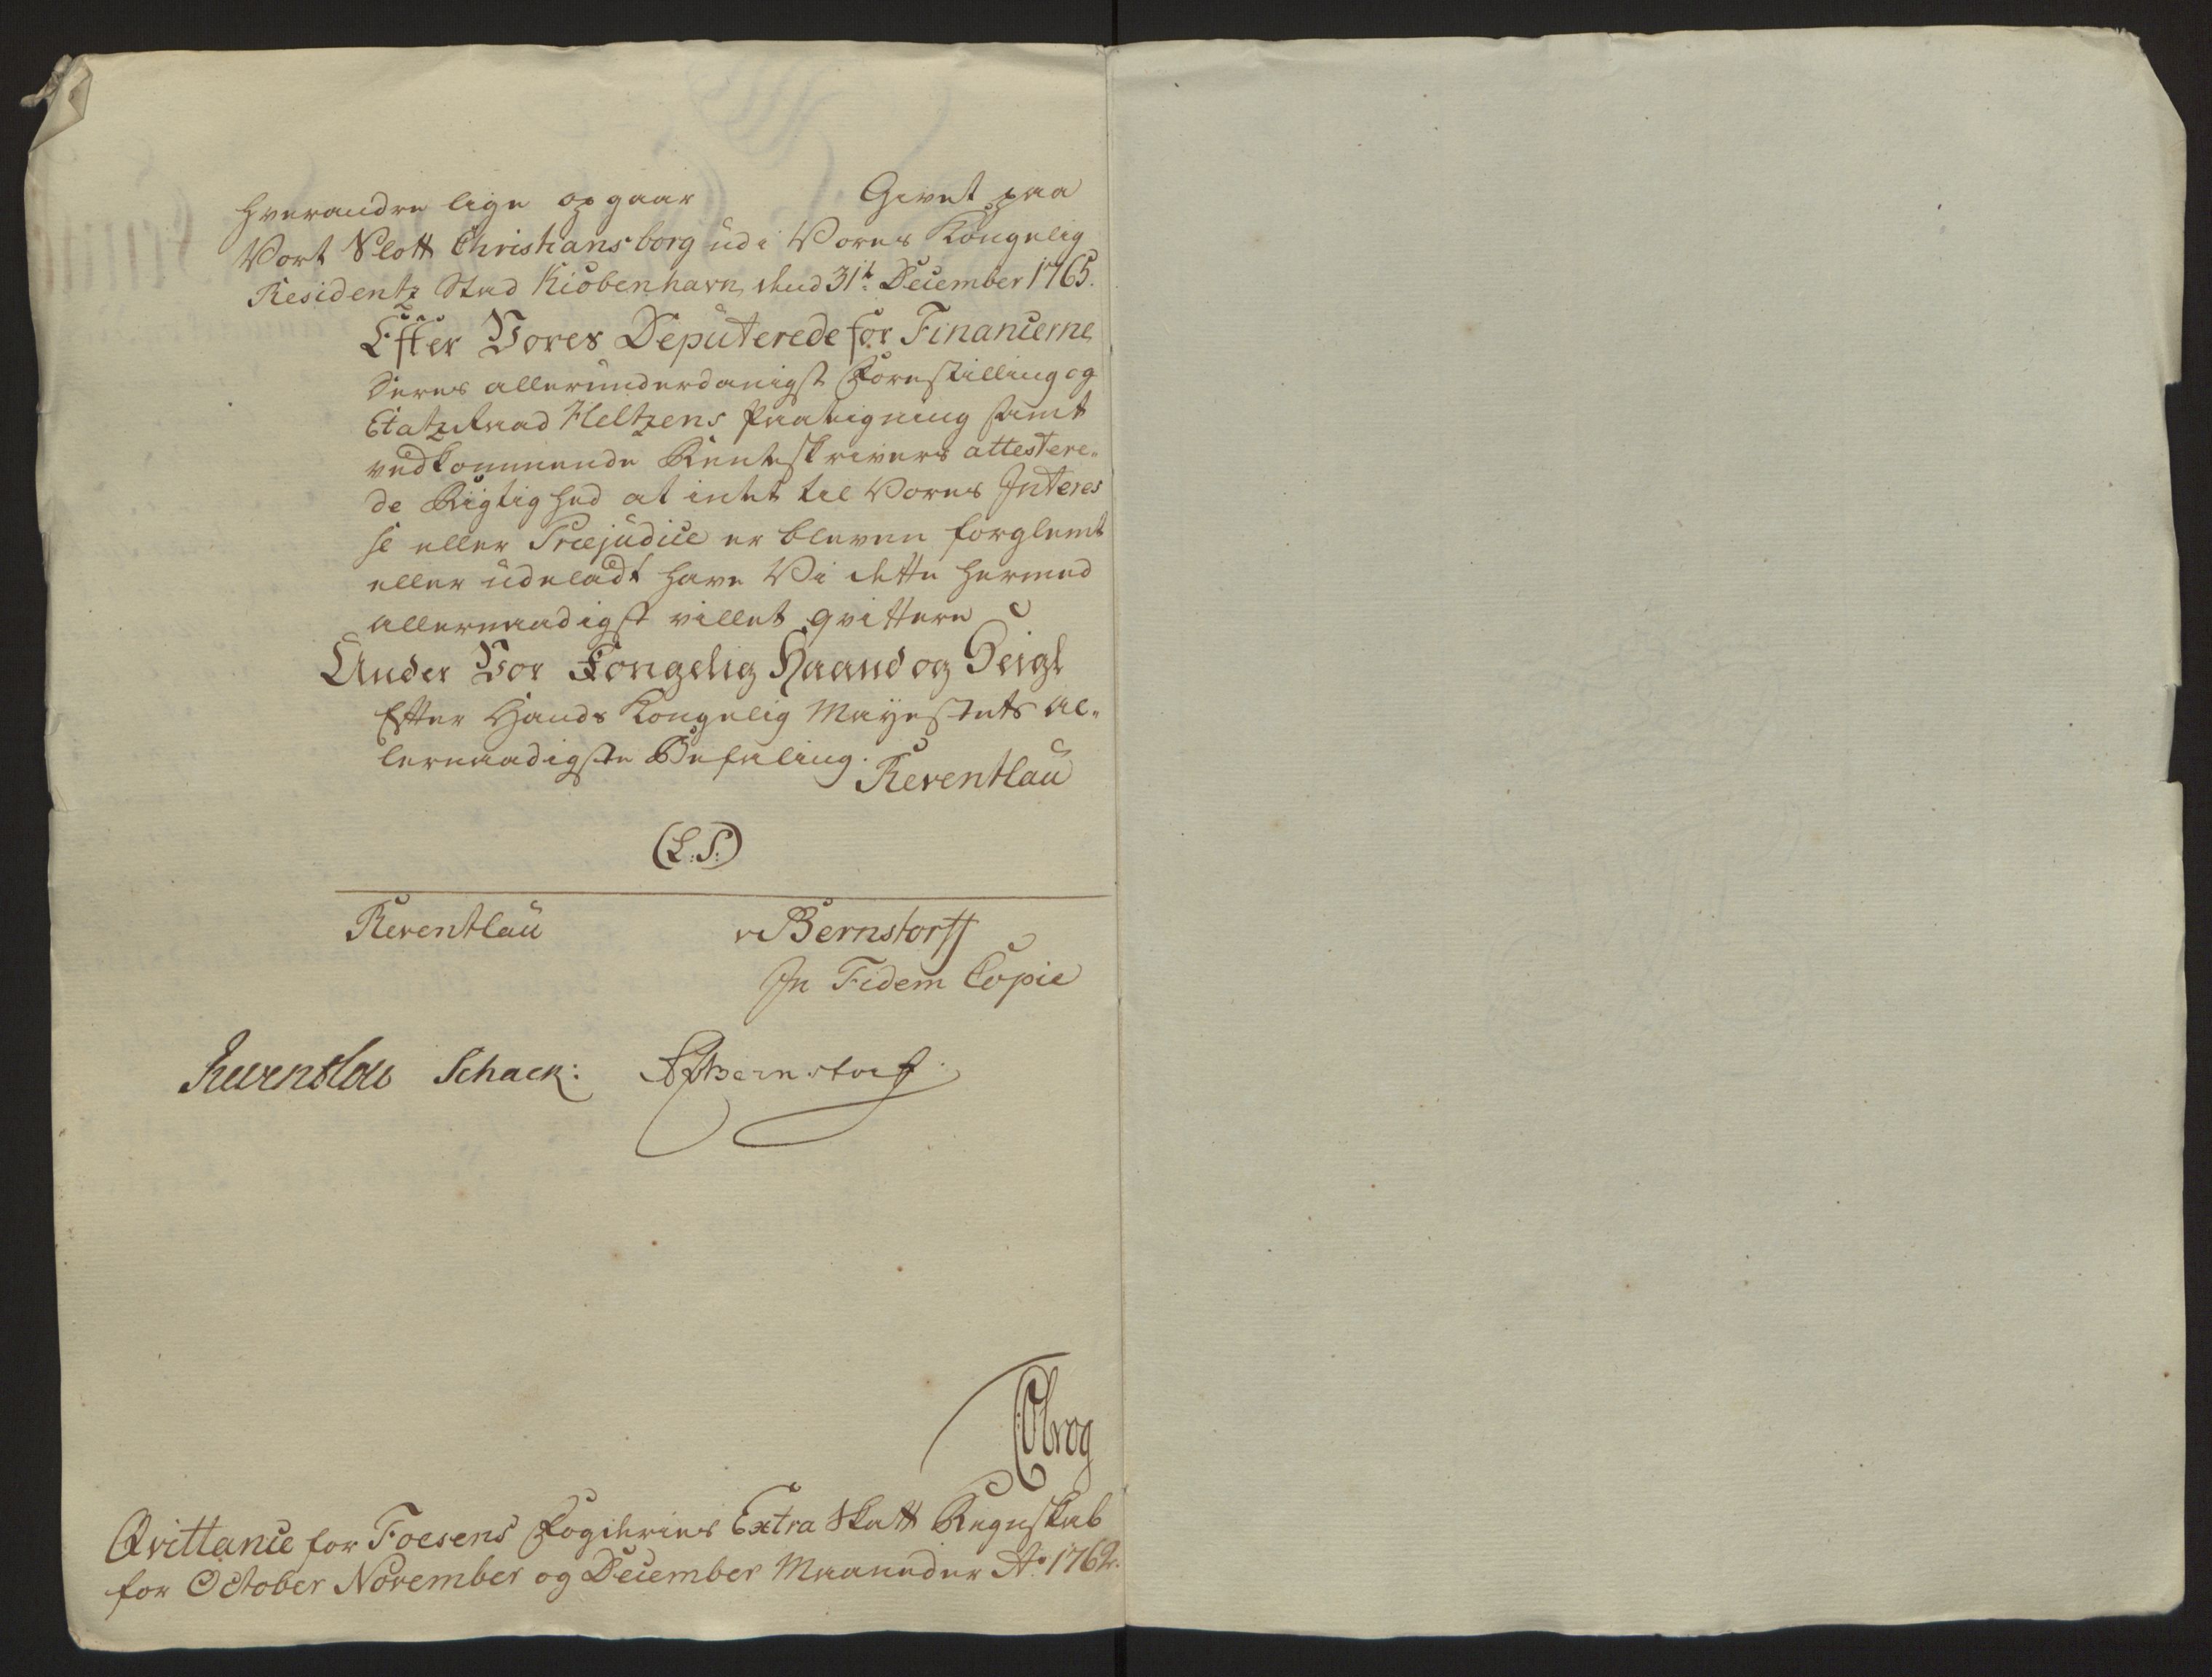 hverandre lige opgaar Givet paa
Vort Slott Christiansborg udi Vores Kongelig
Residentz Stad Kiöbenhavn, dend 31te December 1765.
Efter Vores Deputerede for Financerne
Deres allerunderdanigst Forestilling og
Etatz Raad Heltzens Paategning samt
vedkommende Renteskrivers attestere„
de Rigtighed at intet til Vores Interes
se eller Præjudice er bleven forglemt
eller udeladt have Vi dette hermed
allernaadigst villet qvittere
Under Vor Kongelig Haand og Seigl
Efter Hands Kongelig Mayestets al„
lernaadigste Befaling.
Reventlau
(L:S:)
Reventlau v Bernstorff
In Fidem Copie
Reventlau Schack: Bernstorf
Qvittance for Foesens Fogderies Extra Skatt Regnskab
for October November og December Maaneder Ao. 1762.